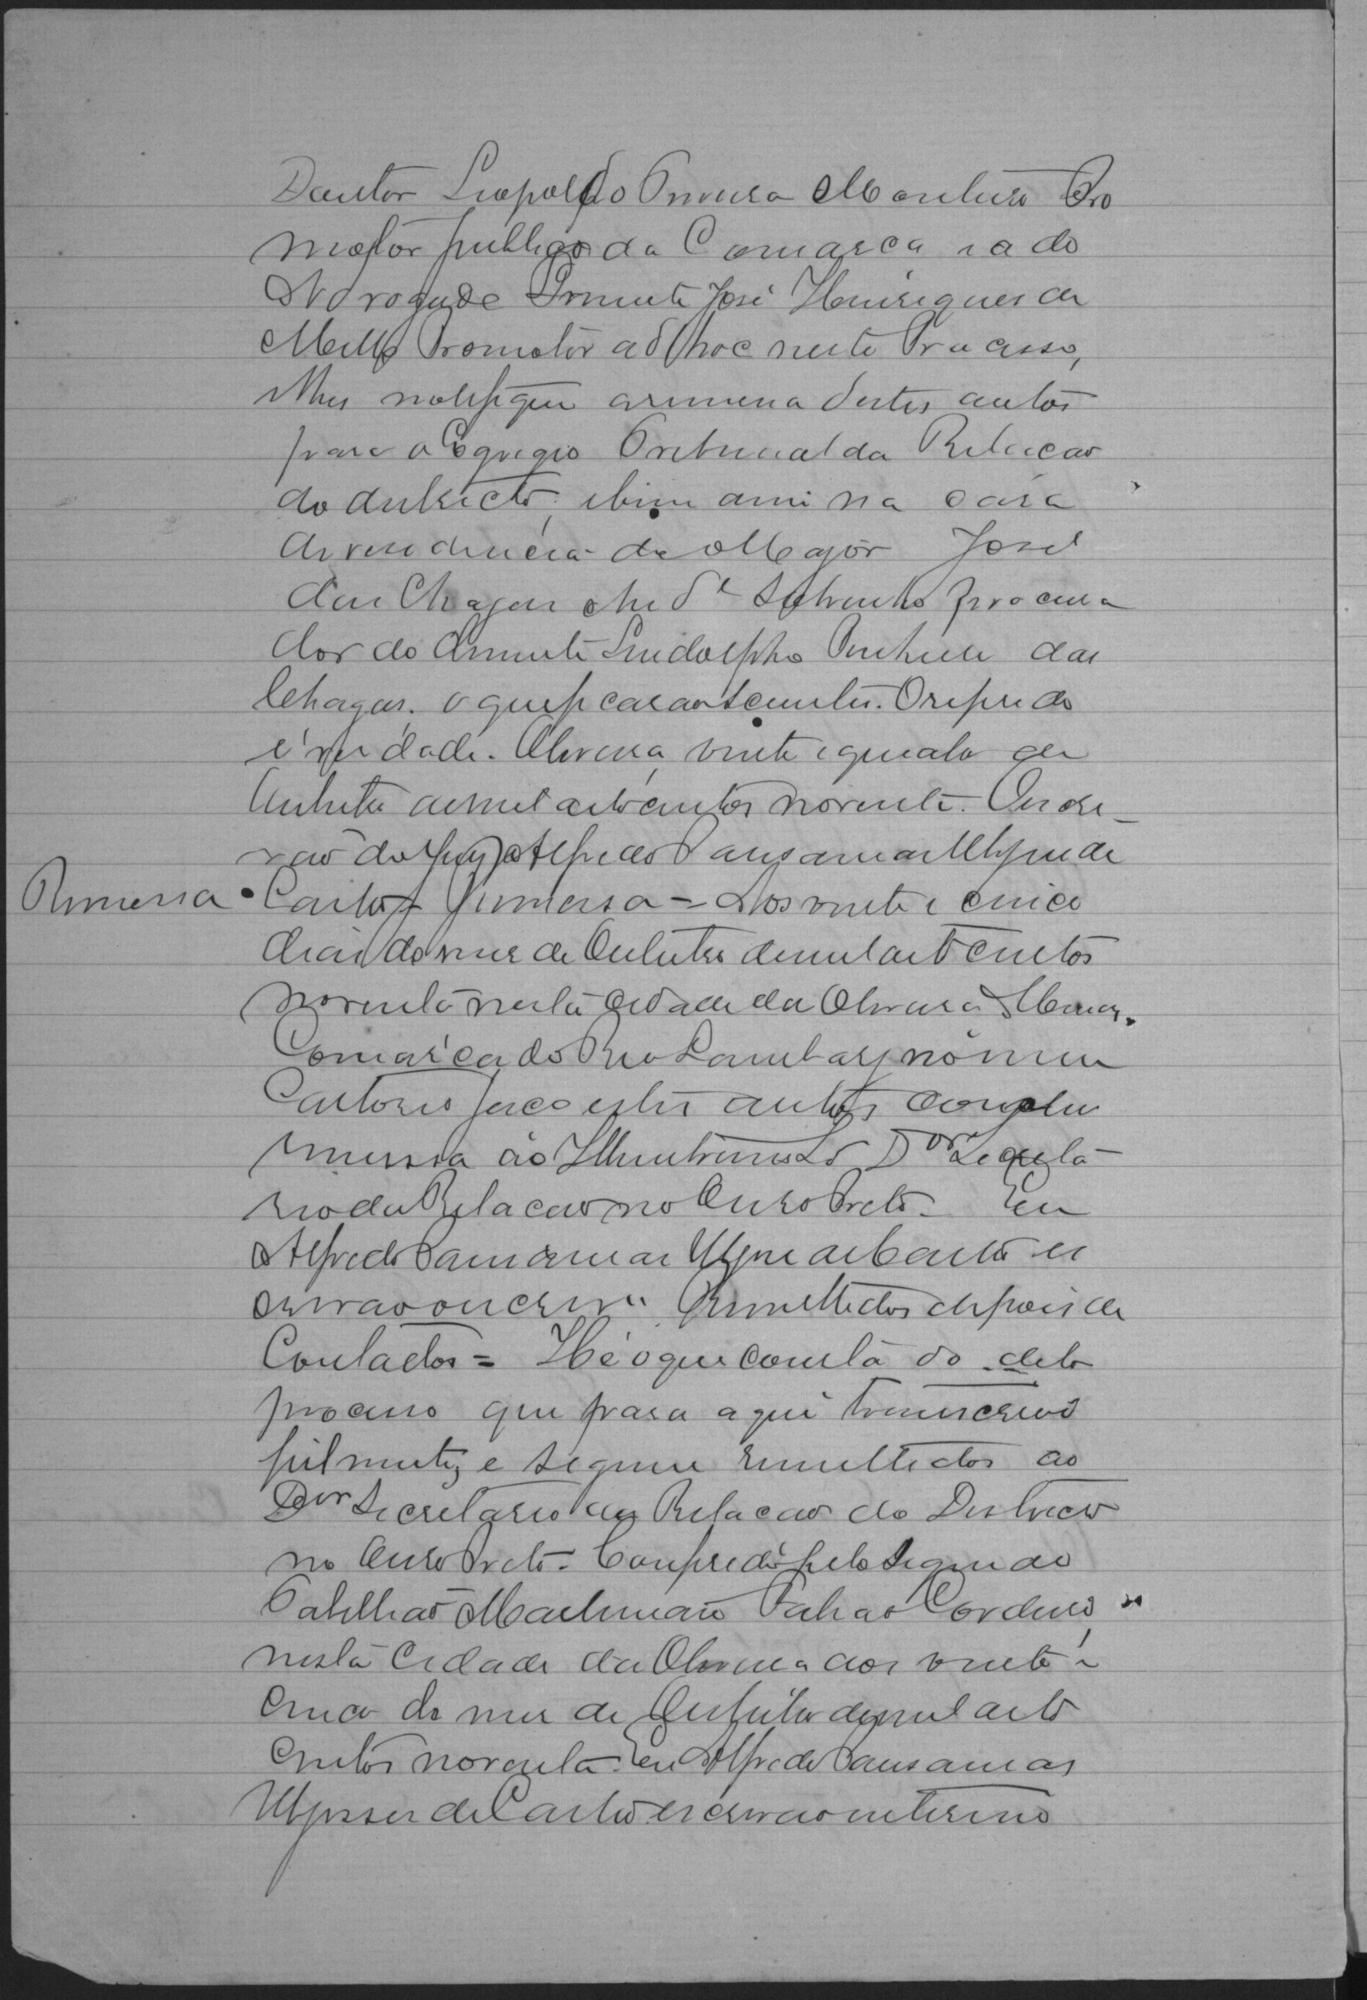 Doutor Leopoldo Monteiro Pro
motor publico da Comarca e ao
Advogado José Henriques de
Mello Promotor ad hoc neste Processo,
lhes notifiquei a remessa destes autos
para o Egregio Tribunal da Relacao
do districto, e bem assim na casa
de residencia do Major José
das Chagas And.e Sobrinho procura
dor do Lindolpho Pinheiro das
Chagas. o que ficaram scientes. O referido
é verdade. Oliveira, vinte e quatro de
Outubro de mil oitocentos noventa. O escri-
vão do Jury Alfredo Pausamas Ulysses de
Remessa
Castro Remessa = Aos vinte e cinco
dias do mes de Outubro de mil oitocentos
noventa nesta Cidade da Oliveira Minas.
Comarca do Rio Lambary no meu
Cartorio faço estes autos com
remessa ao Illustrissimo Dor Secreta-
rio da Relacao no Ouro Preto. Eu
Alfredo Pausamas Ulysses de Castro es
crivao o escrevi. Remettidos depois de
Contados = Hé o que consta do dito
processo que para aqui transcrevi
fielmente, e seguem remettidos ao
Dor Secretario da Relacao do Districto
no Ouro Preto. Conferido pelo segundo
Tabelliao Maximiano Cordeiro,
nesta Cidade da Oliveira aos vinte e
cinco do mes de Outubro de mil oito
centos noventa. Eu Alfredo Pausamas
Ulysses de Castro escrivao interino